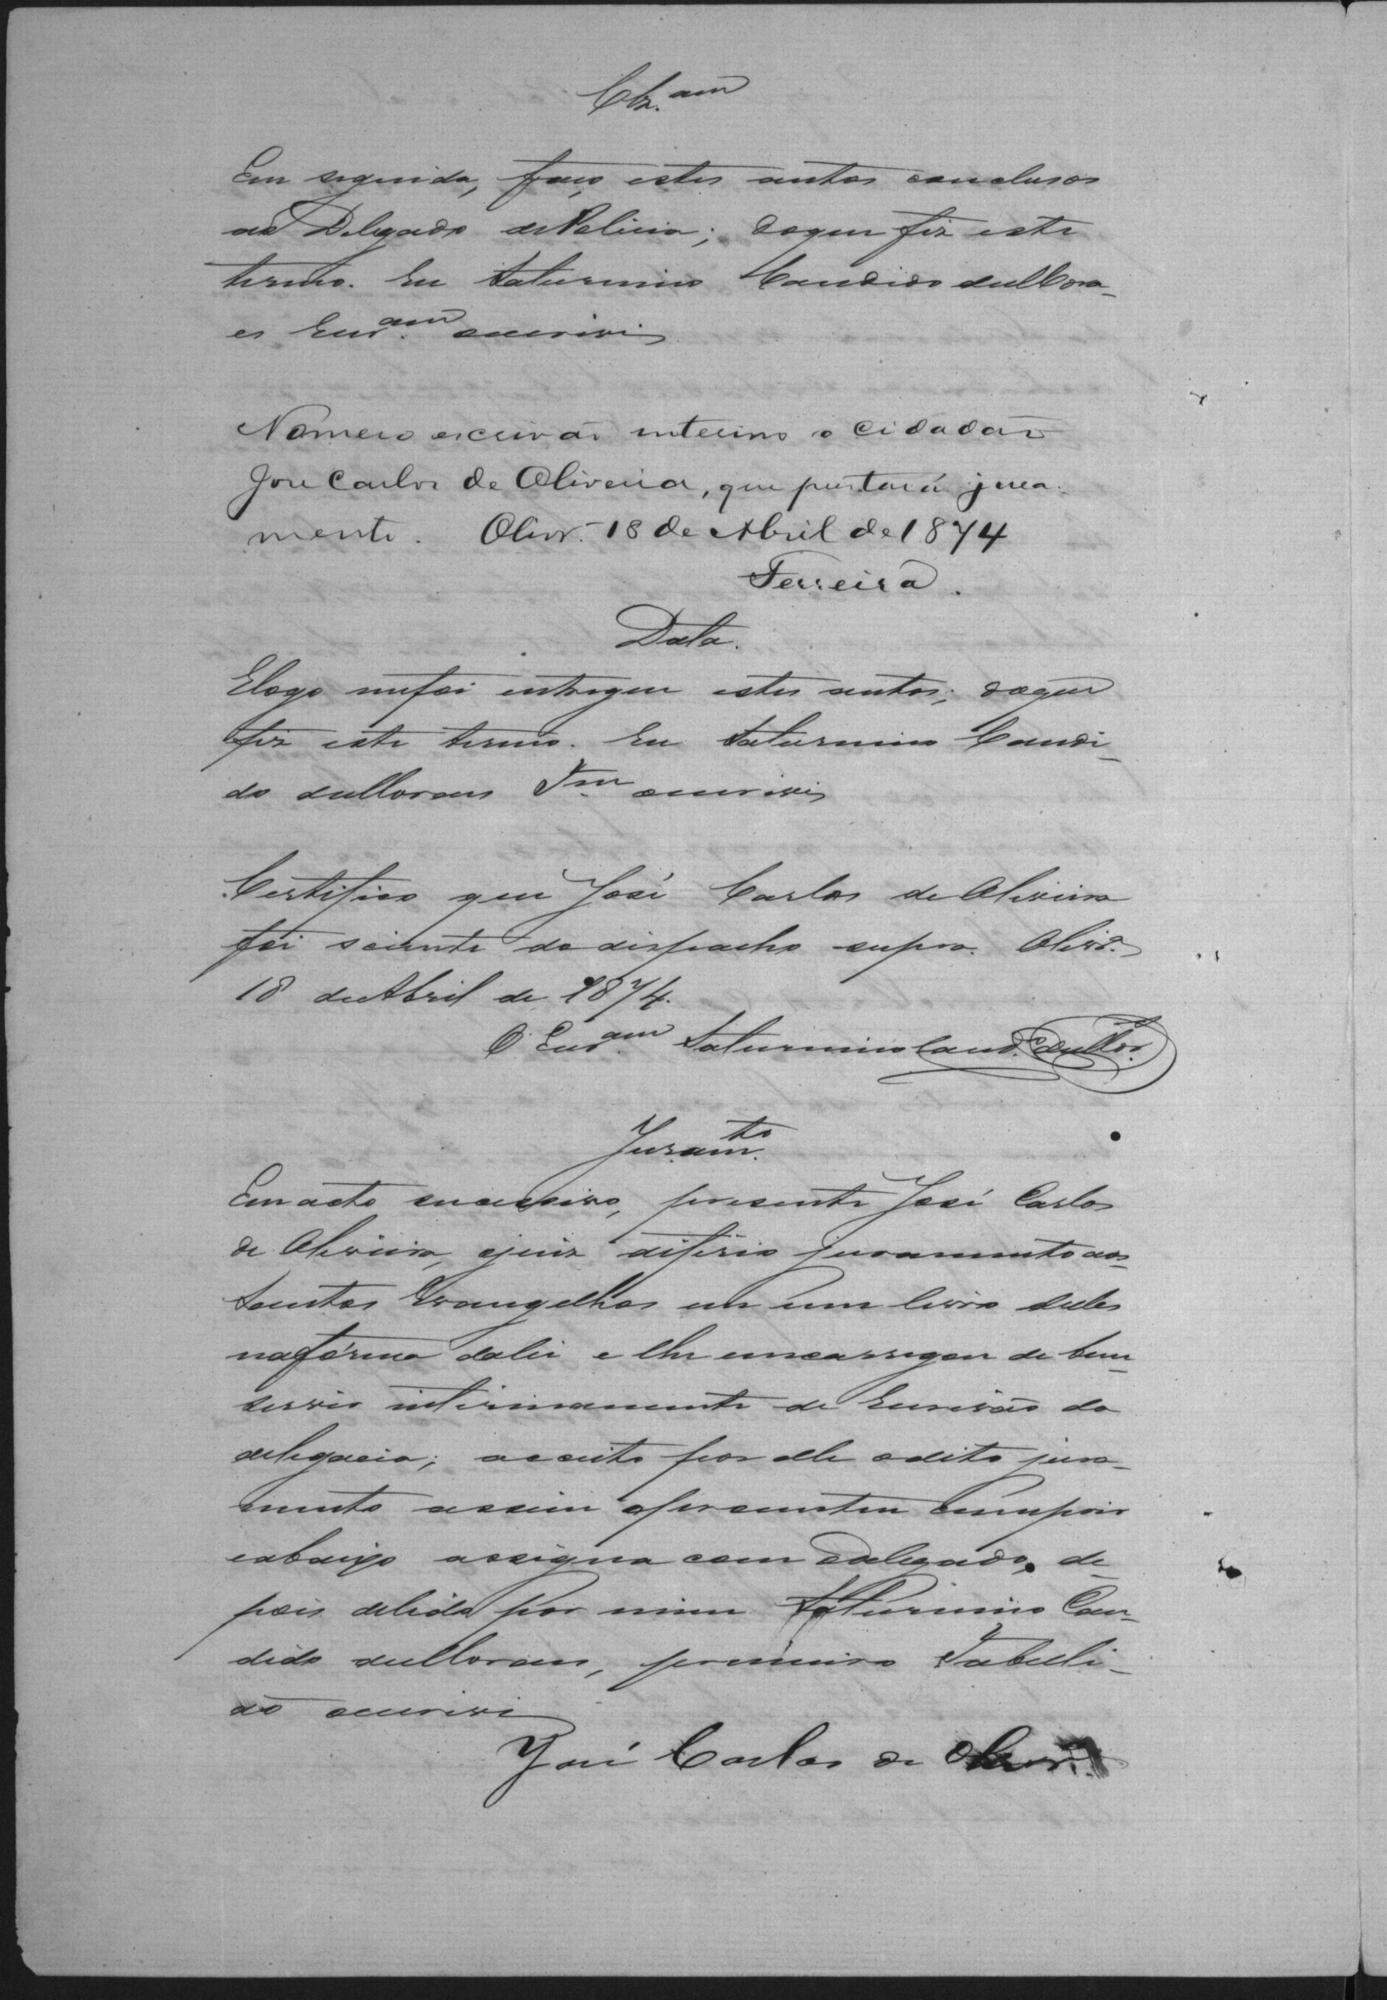 Clz.am
Em seguida, faço estes autos conclusos
ao Delegado de Policia; doque fiz este
termo. Eu Saturnino Candido de Mora_
es Escr.am escrivi
Nomeio escrivão interino o cidadão
José Carlos de Oliveira, que prestará jura_
mento. Olivr.ª 18 de Abril de 1874
Ferreira.
Data.
E logo me foi entregue estes autos; doque
fiz este termo. Eu Saturnino Candi_
do de Moraes Tm escrivi
Certifico que José Carlos de Oliveira
foi sciente do dispacho supra. Olivr.ª
18 de Abril de 1874.
O Escr.am Saturnino Cand.º de Mor.
Juram.to
Em acto sucessivo, presente José Carlos
de Oliveira, o juiz diferio juramento aos
Santos Evangelhos em um livro delles
na fórma da lei e lhe encarregou de bem_
servir interinamente de Escrivão da
delegacia; acceito por elle o dito jura_
mento assim o prometeu cumprir
e abaixo assigna com o delegado, de_
pois de lido por mim Saturnino Can_
dido de Moraes, primeiro Tabelli_
ão escrivi
José Carlos de Olivr.ª